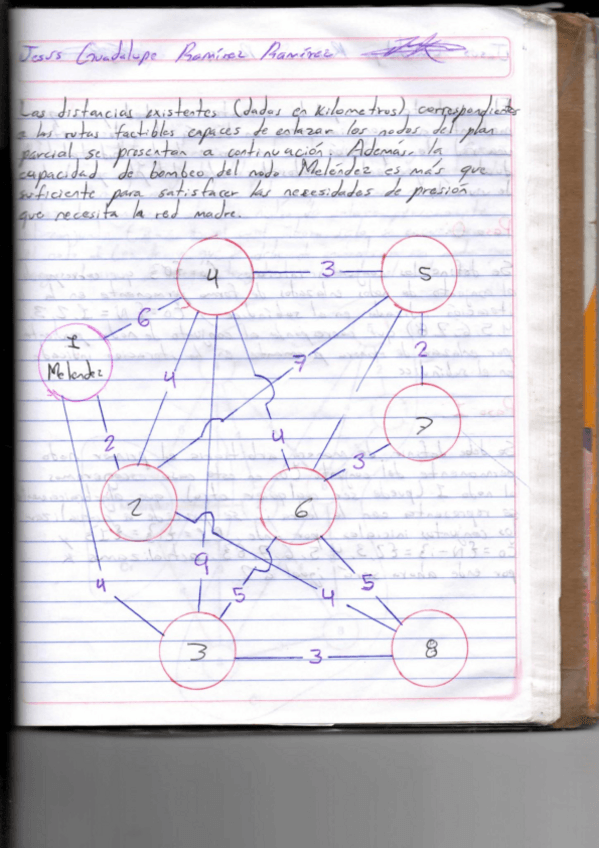 Jesus Guadalupe Ramírez Ramírez
Las distancias existentes (dados en Kilometros) correspondientes
a las rutas factibles capaces de enlazar los nodos del plan
parcial se presentan a continuación. Además, la
capacidad de bombeo del nodo Meléndez es más que
suficiente para satisfacer las necesidades de presión
que necesita la red madre.
4
3
5
6
1
Melendez
7
2
4
7
2
4
3
2
6
9
4
5
4
5
3
3
8